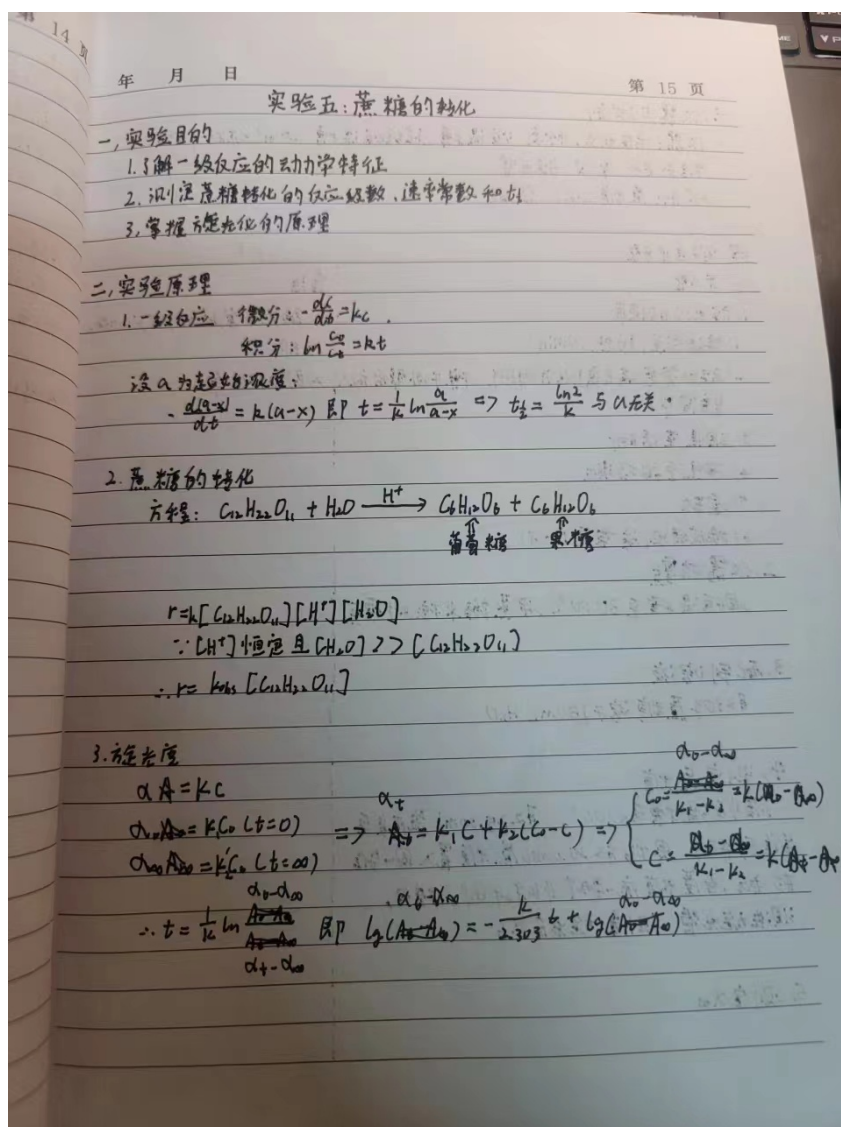 第 14 页
年 月 日
第 15 页
实验五：蔗糖的转化
一，实验目的
1.了解一级反应的动力学特征
2.测定蔗糖转化的反应级数、速率常数和t½
3.掌握旋光仪的原理
二，实验原理
1.一级反应 微分：-dc/dt=kc
积分：ln c₀/cₜ=kt
设a为起始浓度：
-d(a-x)/dt=k(a-x) 即 t=1/k ln a/(a-x) => t½=ln2/k 与a无关.
2.蔗糖的转化
方程：C₁₂H₂₂O₁₁+H₂O —H⁺→ C₆H₁₂O₆+C₆H₁₂O₆
葡萄糖 果糖
r=k[C₁₂H₂₂O₁₁][H⁺][H₂O]
∵[H⁺]恒定且[H₂O]>>[C₁₂H₂₂O₁₁]
∴r=kobs[C₁₂H₂₂O₁₁]
3.旋光度
α=KC
α₀=K₁C₀(t=0)
α∞=K₂C₀(t=∞)
=> αₜ=K₁C+K₂(C₀-C) =>
C₀=(α₀-α∞)/(K₁-K₂)=K(α₀-α∞)
C=(αₜ-α∞)/(K₁-K₂)=K(αₜ-α∞
∴t=1/k ln (α₀-α∞)/(αₜ-α∞) 即 lg(αₜ-α∞)=-k/2.303 t+lg(α₀-α∞)